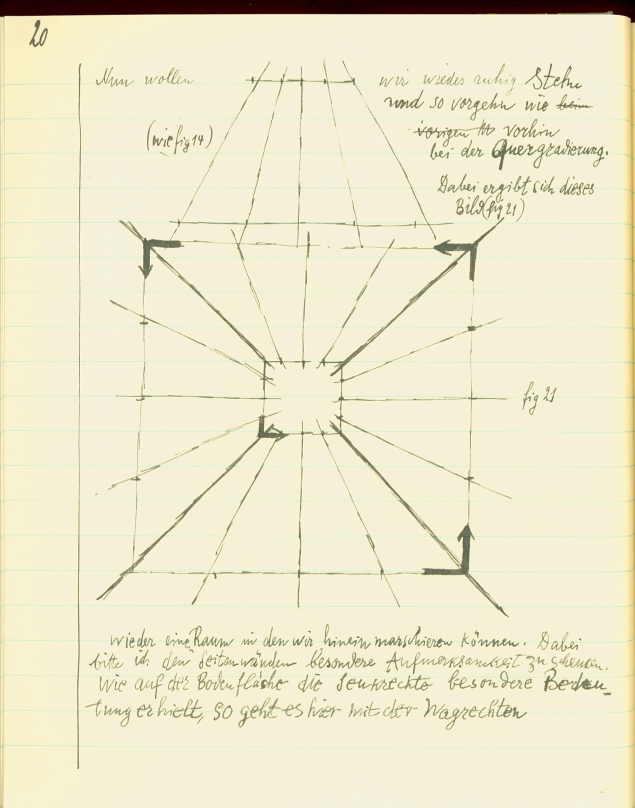 20
Nun wollen wir wieder ruhig Stehn
und so vorgehn wie beim
vorigen vorhin
(wie fig 14)
bei der Quergradierung.
Dabei ergibt sich dieses
Bild (fig 21)
fig 21
wieder eine Raum in den wir hinein marschieren können. Dabei
bitte ich den Seitenwänden besondere Aufmerksamkeit zu schenken.
Wie auf der Bodenfläche die Senkrechte besondere Bedeu_
tung erhielt, so geht es hier mit der Wagrechten